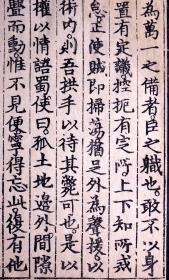 為萬一之備者臣之職也敢不以身
置有定議控扼有定所上下知所戒
急正使賊即掃蕩猶足外為聲援以
術內則吾拱手以待其斃可也是以
權以情語蜀使曰孤土地邊外間隙
舋而動惟不見便寧得忘此復有他